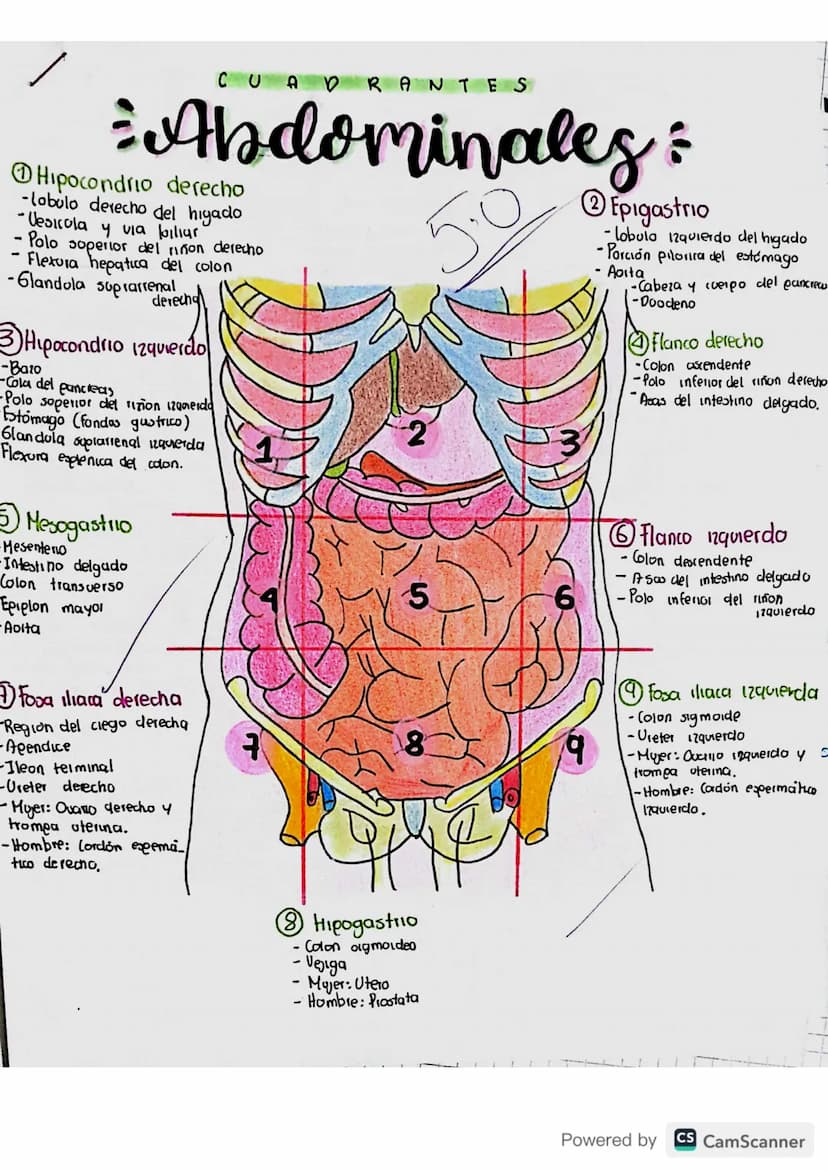 CUADRANTES
Abdominales
5.0
① Hipocondrio derecho
-Lobulo derecho del higado
-Vesicola y via biliar
- Polo superior del riñon derecho
- Flexura hepatica del colon
-Glandola suprarrenal
derecha
② Epigastrio
- Lobulo izquierdo del higado
- Porción pilorica del estómago
- Aorta
-Cabeza y cuerpo del pancrea
-Duodeno
③ Hipocondrio izquierdo
-Bazo
-Cola del pancreas
-Polo superior del riñon izquierdo
Estómago (fondos gastrico)
Glandola suprarrenal izquierda
Flexura esplenica del colon.
④ Flanco derecho
- Colon ascendente
-Polo inferior del riñon derecho
- Asas del intestino delgado.
1
2
3
5 Mesogastrio
Mesenterio
-Intestino delgado
Colon transverso
Epiplon mayor
- Aorta
⑥ Flanco izquierdo
- Colon descendente
- Asas del intestino delgado
- Polo inferior del riñon
izquierdo
4
5
6
7 Fosa iliaca derecha
-Region del ciego derecha
-Apendice
-Ileon terminal
-Ureter derecho
- Mujer: Ovario derecho y
trompa uterina.
-Hombre: Cordón espermá-
tico derecho.
⑨ Fosa iliaca izquierda
- Colon sigmoide
- Ureter izquierdo
-Mujer: Ovario izquierdo y
trompa uterina.
-Hombre: Cordón espermatico
izquierdo.
7
8
9
⑧ Hipogastrio
- Colon sigmoideo
- Vejiga
- Mujer: Utero
- Hombre: Prostata
Powered by CS CamScanner